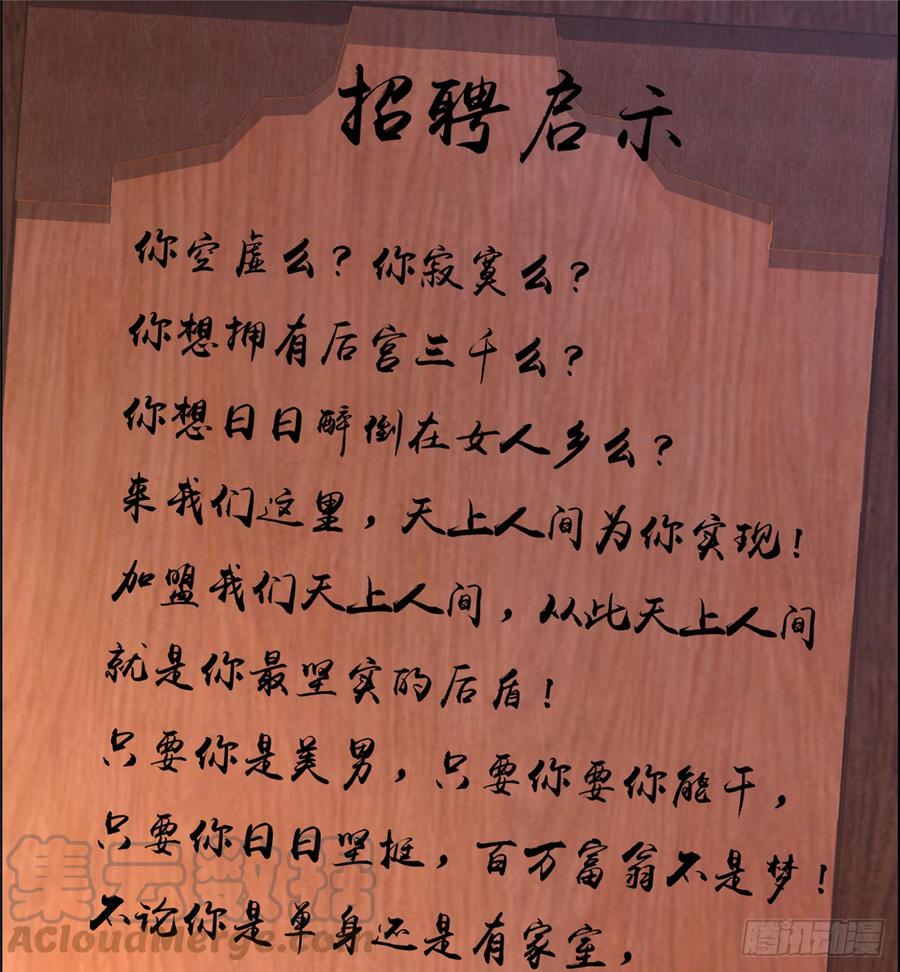 招聘启示
你空虚么？你寂寞么？
你想拥有后宫三千么？
你想日日醉倒在女人乡么？
来我们这里，天上人间为你实现！
加盟我们天上人间，从此天上人间
就是你最坚实的后盾！
只要你是美男，只要你要你能干，
只要你日日坚挺，百万富翁不是梦！
不论你是单身还是有家室，
集云数据
ACloudmerge.com
腾讯动漫